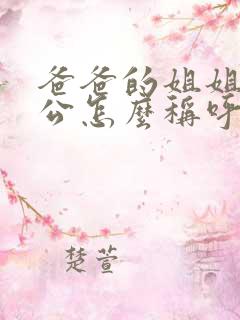 爸爸的姐姐
公怎麼稱呼
楚萱